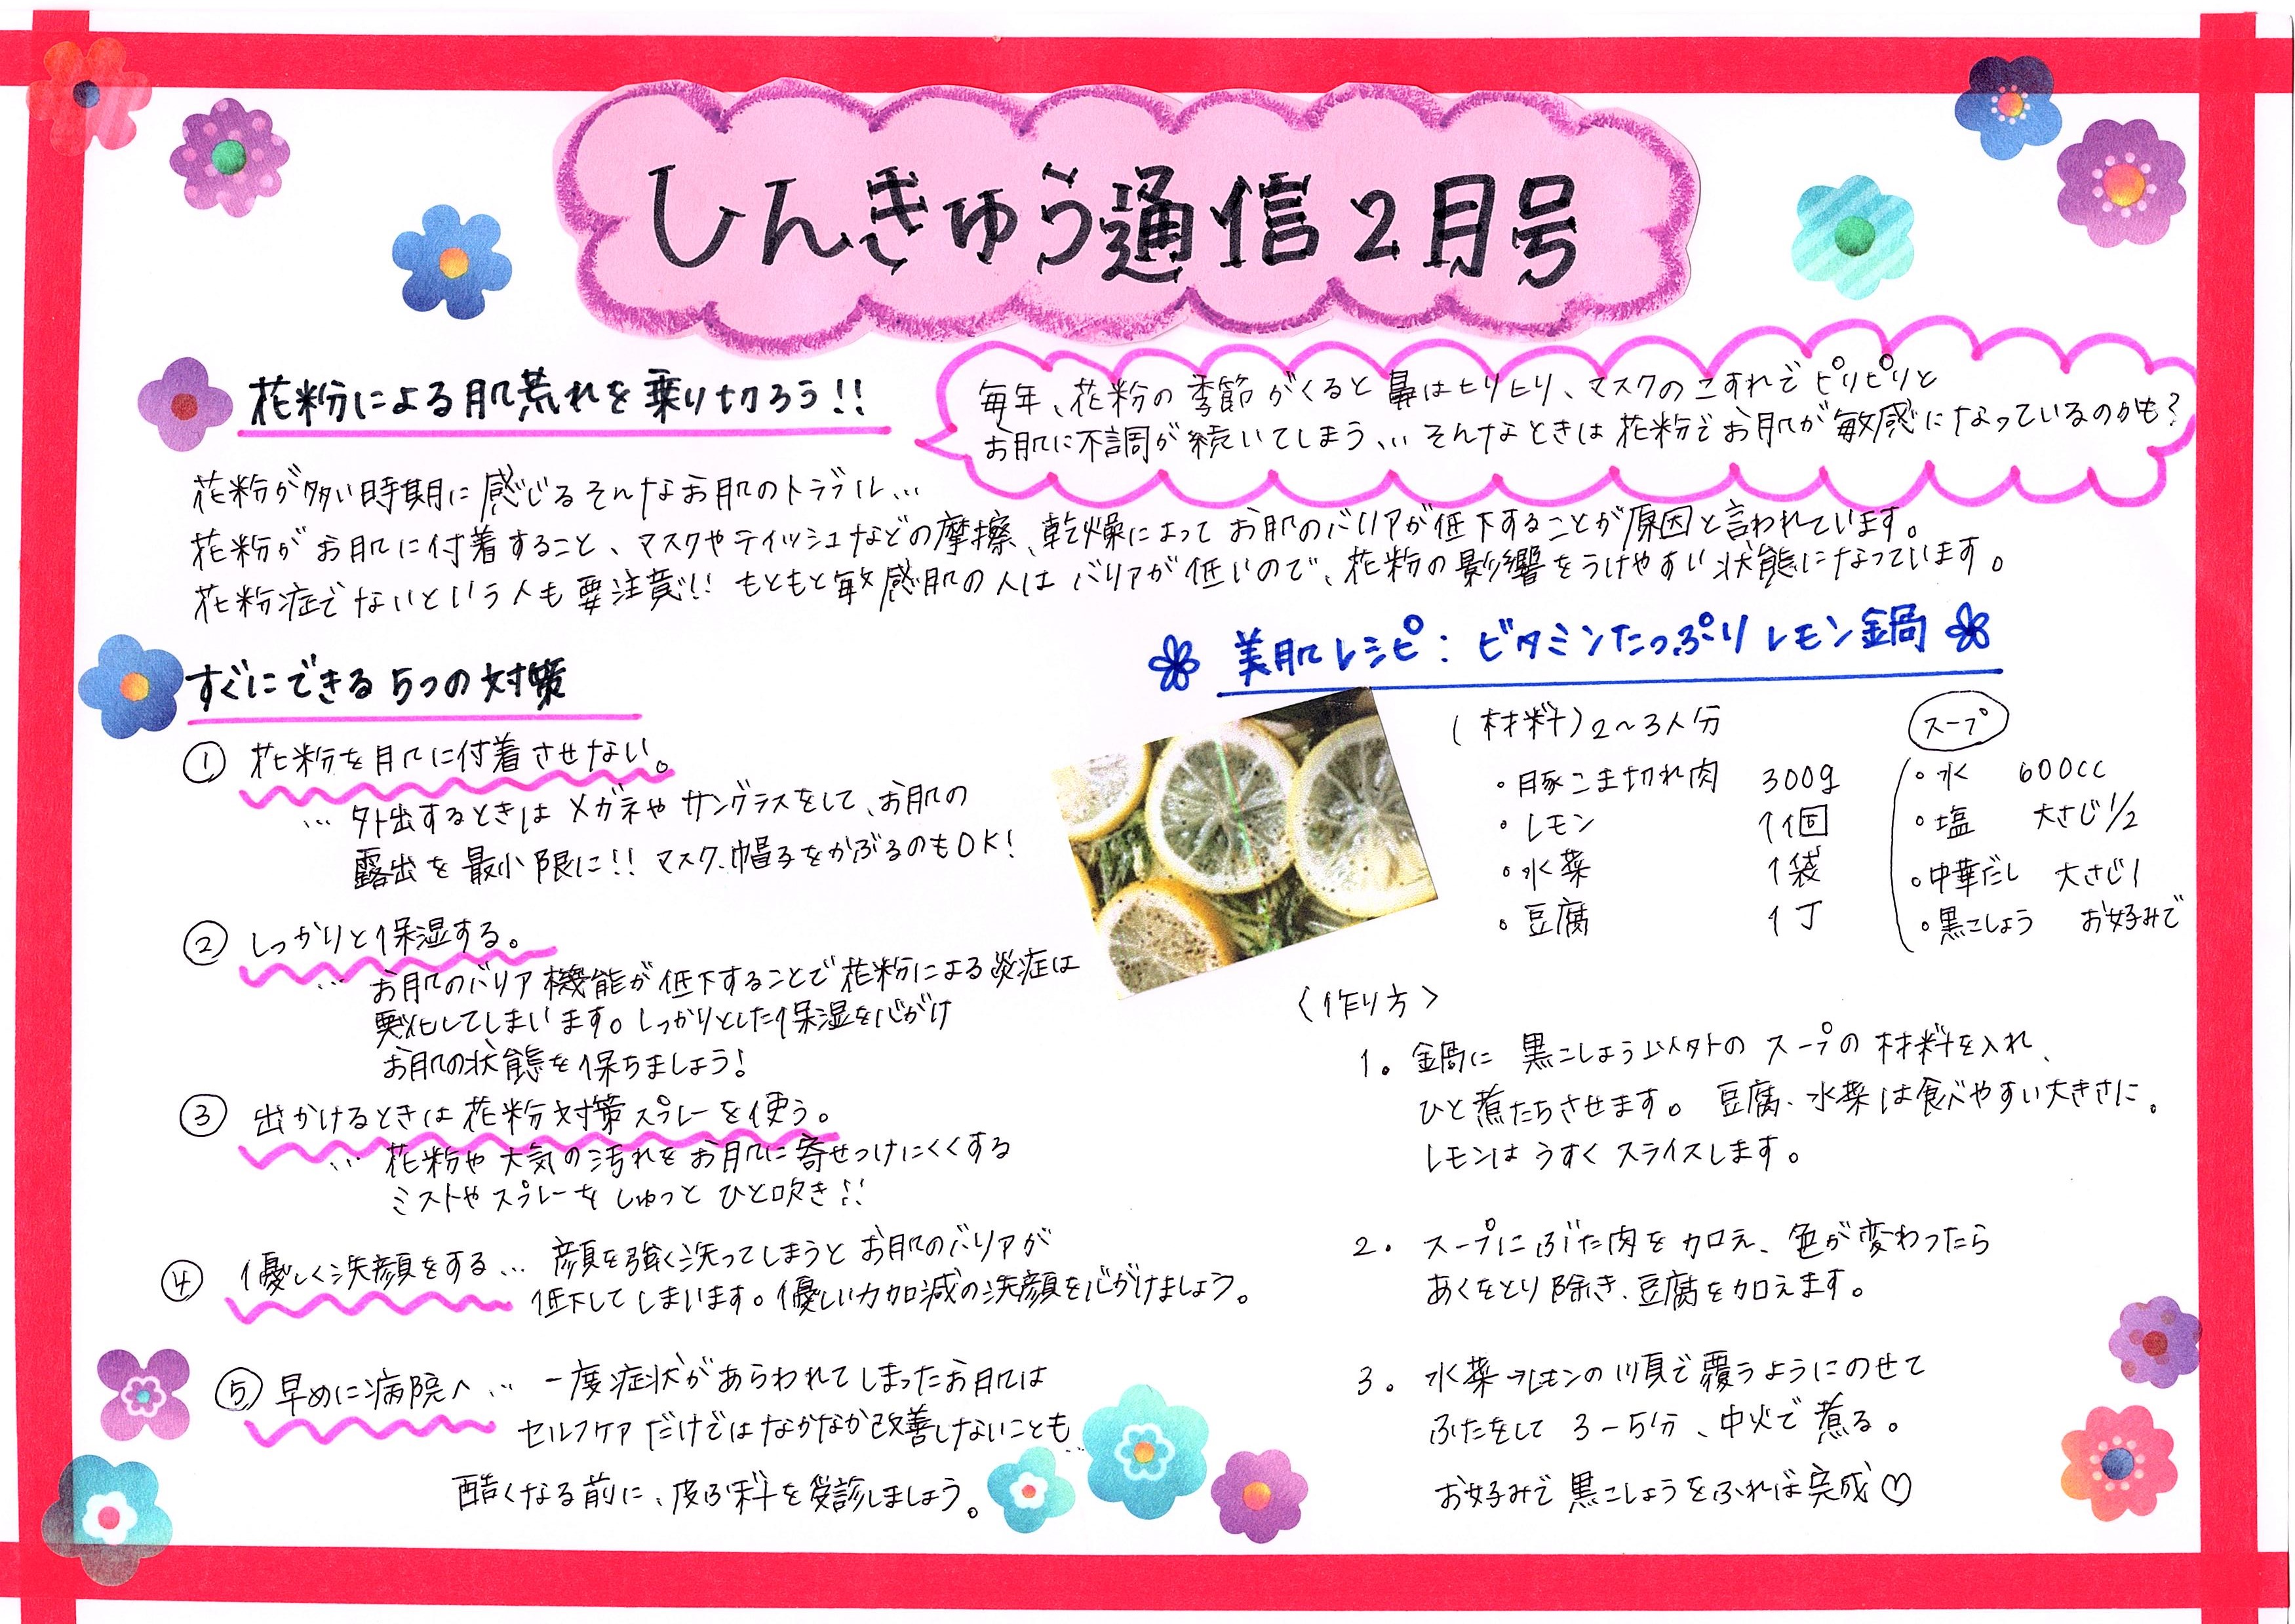 しんきゅう通信2月号
花粉による肌荒れを乗り切ろう!!
毎年、花粉の季節がくると鼻はヒリヒリ、マスクのこすれでピリピリと
お肌に不調が続いてしまう… そんなときは花粉でお肌が敏感になっているのかも?
花粉が多い時期に感じるそんなお肌のトラブル…
花粉がお肌に付着すること、マスクやティッシュなどの摩擦、乾燥によってお肌のバリアが低下することが原因と言われています。
花粉症でないという人も要注意!! もともと敏感肌の人はバリアが低いので、花粉の影響をうけやすい状態になっています。
すぐにできる5つの対策
① 花粉を肌に付着させない。
… 外出するときはメガネやサングラスをして、お肌の
露出を最小限に!! マスク、帽子をかぶるのもOK!
② しっかりと保湿する。
… お肌のバリア機能が低下することで花粉による炎症は
悪化してしまいます。しっかりとした保湿を心がけ
お肌の状態を保ちましょう!
③ 出かけるときは花粉対策スプレーを使う。
… 花粉や大気の汚れをお肌に寄せつけにくくする
ミストやスプレーをしゅっとひと吹き!!
④ 優しく洗顔をする… 顔を強く洗ってしまうとお肌のバリアが
低下してしまいます。優しい力加減の洗顔を心がけましょう。
⑤ 早めに病院へ… 一度症状があらわれてしまったお肌は
セルフケアだけではなかなか改善しないことも…
酷くなる前に、皮ふ科を受診しましょう。
美肌レシピ:ビタミンたっぷりレモン鍋
(材料)2~3人分
・豚こま切れ肉 300g
・レモン 1個
・水菜 1袋
・豆腐 1丁
スープ
・水 600cc
・塩 大さじ1/2
・中華だし 大さじ1
・黒こしょう お好みで
〈作り方〉
1. 鍋に黒こしょう以外のスープの材料を入れ、
ひと煮たちさせます。豆腐、水菜は食べやすい大きさに。
レモンはうすくスライスします。
2. スープにぶた肉を加え、色が変わったら
あくをとり除き、豆腐を加えます。
3. 水菜→レモンの順で覆うようにのせて
ふたをして3-5分、中火で煮る。
お好みで黒こしょうをふれば完成♡